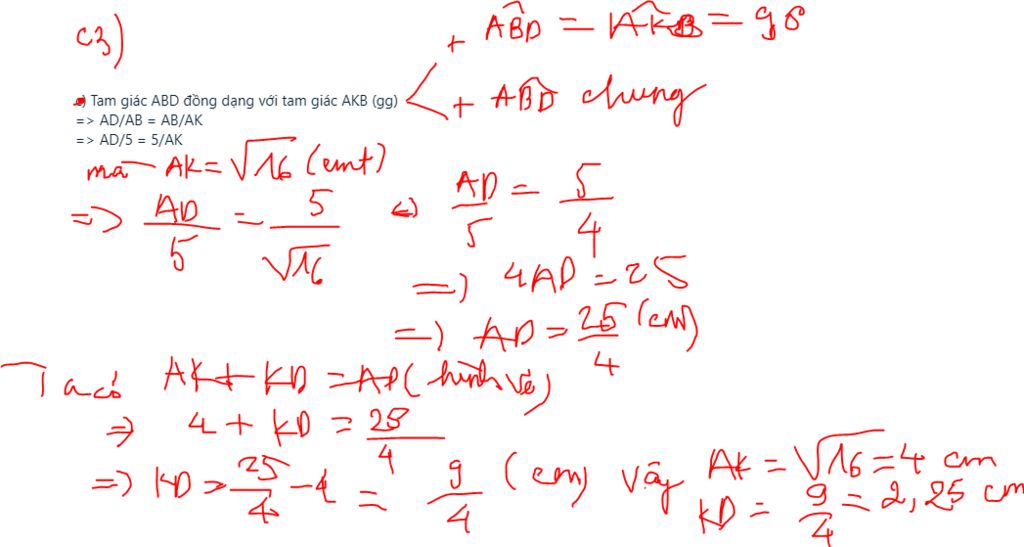 c3)
+ ABD = AKB = 90
c) Tam giác ABD đồng dạng với tam giác AKB (gg)
+ ABD chung
=> AD/AB = AB/AK
=> AD/5 = 5/AK
mà AK = √16 (cmt)
=> AD/5 = 5/√16 <=> AD/5 = 5/4
=> 4AD = 25
=> AD = 25/4 (cm)
Ta có AK + KD = AD (hình vẽ)
=> 4 + KD = 25/4
=> KD = 25/4 - 4 = 9/4 (cm) Vậy AK = √16 = 4 cm
KD = 9/4 = 2,25 cm